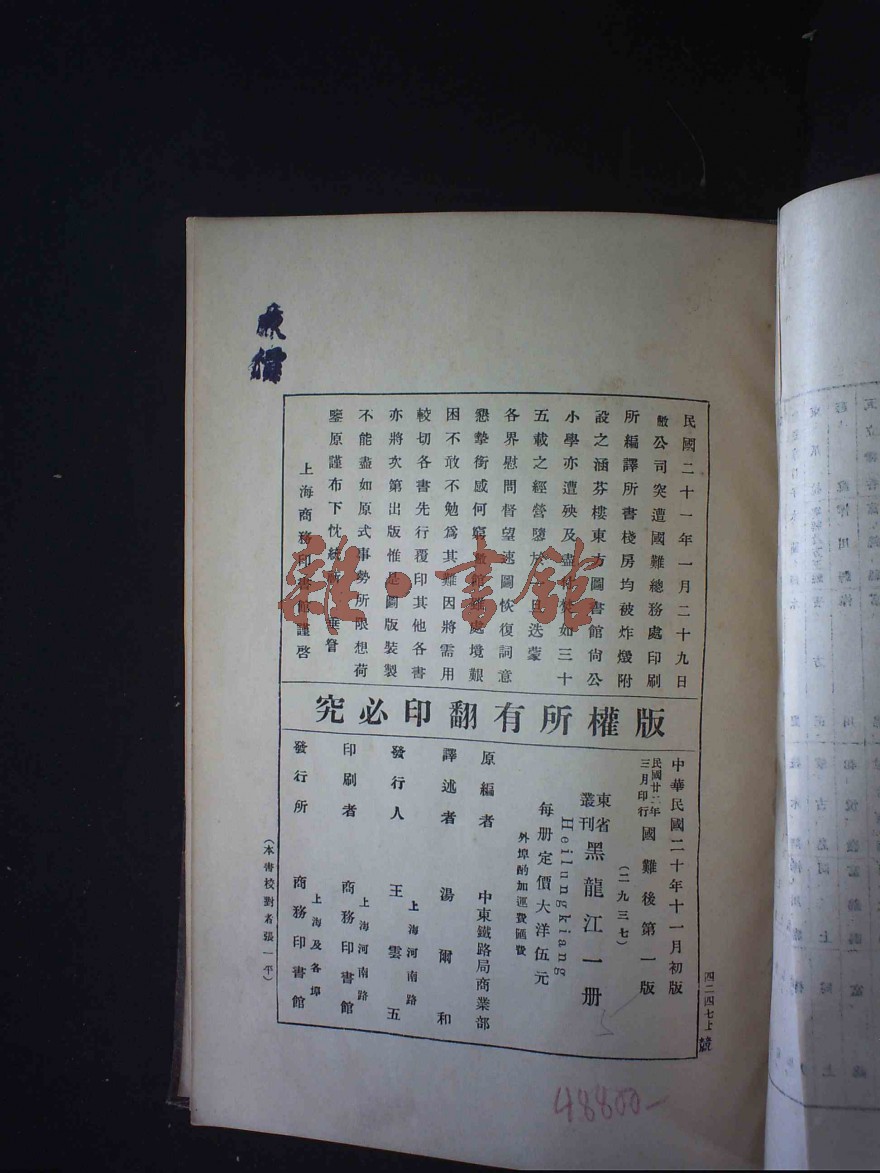 民國二十一年一月二十九日
敝公司突遭國難總務處印刷
所編譯所書棧房均被炸燬附
設之涵芬樓東方圖書館尙公
小學亦遭殃及盡付焚如三十
五載之經營隳於一旦迭蒙
各界慰問督望速圖恢復詞意
懇摯銜感何窮敝館雖處境艱
困不敢不勉爲其難因將需用
較切各書先行覆印其他各書
亦將次第出版惟是圖版裝製
不能盡如原式事勢所限想荷
鑒原謹布下忱統祈 垂詧
上海商務印書館謹啓
版權所有翻印必究
中華民國二十年十一月初版
民國廿二年三月印行 國難後第一版
(二九三七)
東省叢刊 黑龍江一册
Heilungkiang
每册定價大洋伍元
外埠酌加運費匯費
原編者 中東鐵路局商業部
譯述者 湯爾和
發行人 王雲五
上海河南路
印刷者 商務印書館
上海河南路
發行所 商務印書館
上海及各埠
(本書校對者張一平)
四二四七上
48800-
雜·書館